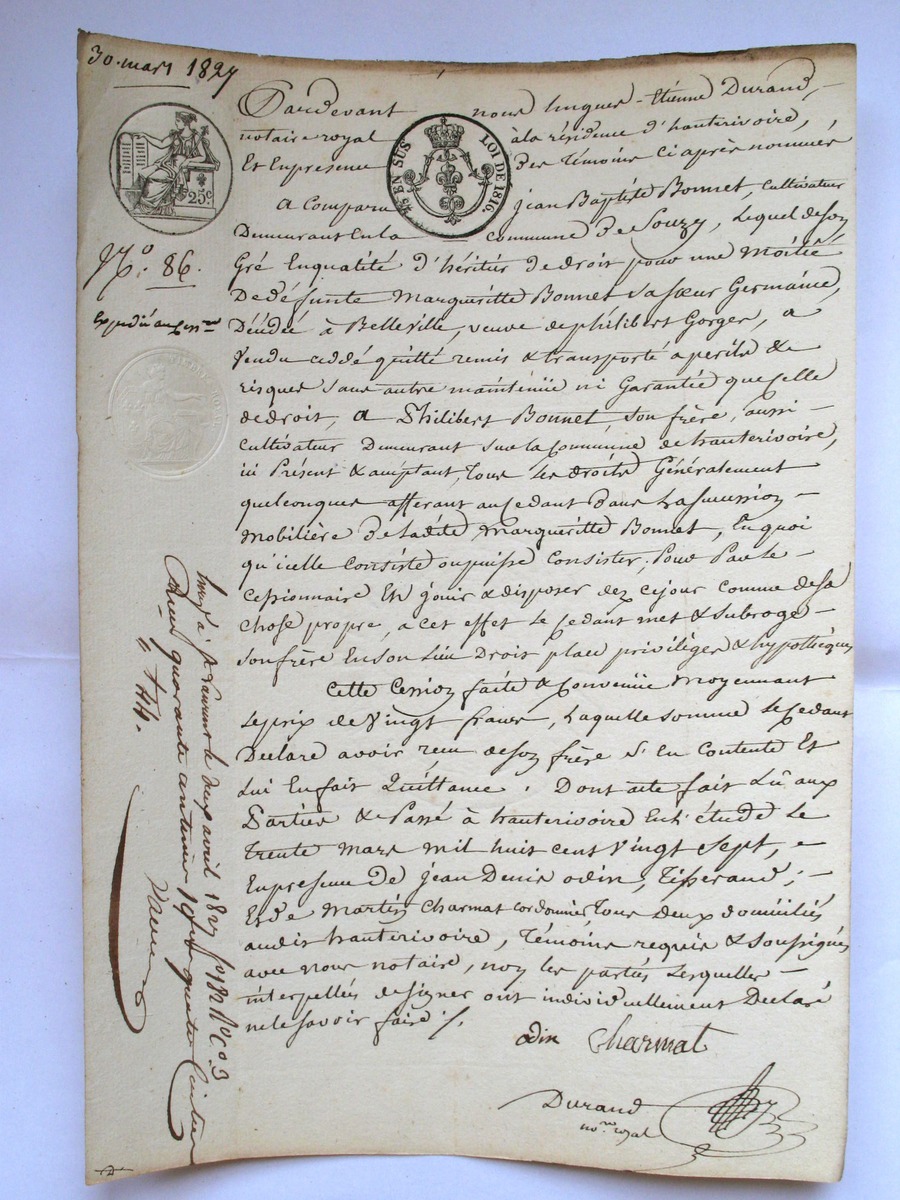 30. mars 1827
Pardevant nous hugues-Etienne Durand,
notaire royal à la résidence d'hauterivoire,
Et En presence des témoins ci après nommés
25c
25 EN SUS
LOI DE 1816.
A Comparu jean Baptiste Bonnet, cultivateur
Demeurant En la commune de Souzy, Lequel de son
Gré En qualité d'héritier de droit pour une Moitié
De défunte Margueritte Bonnet sa sœur Germaine,
Décédée à Belleville, veuve de philibert Gorger, a
Vendu cédé quitté remis & transporté a perils &
risques sans autre maintenüe ni Garantie que celle
de droit, A Philibert Bonnet son frère, aussi
cultivateur Demeurant sur la Commune de hauterivoire,
ici Présent & acceptant, Tous Les droits Généralement
quelconques afferant au Cedant Dans La Succession
mobilière De ladite Margueritte Bonnet, En quoi
qu'icelle Consiste ou puisse Consister, Pour Par le
Cessionnaire En jouir & disposer dez ce jour comme de sa
chose propre, a cet effet Le Cedant met & subroge
son frère En son Lieu Droit place privilèges & hypothèques
Cette Cession faite & Convenüe Moyennant
Le prix de Vingt francs, Laquelle somme Le Cedant
Déclare avoir reçu de son frère S'En Contente Et
Lui En fait Quittance. Dont acte fait Lû aux
Parties & Passé à hauterivoire En l'étude Le
trente Mars mil huit cent Vingt Sept,
En presence De jean Denis odin, Tisserand;
Et de Martin Charmat cordonnier Tous deux domiciliés
audit hauterivoire, Témoins requis & soussignés
avec nous notaire, non les parties Lesquelles
interpellées de signer ont individuellement Déclaré
ne le savoir faire ./.
odin Charmat
Durand
no.re royal
N.o 86.
Expédié au Cess.re
Enreg.é à St Laurent le deux avril 1827 f.o 82 R.o C.o 3
Reçu quarante centimes